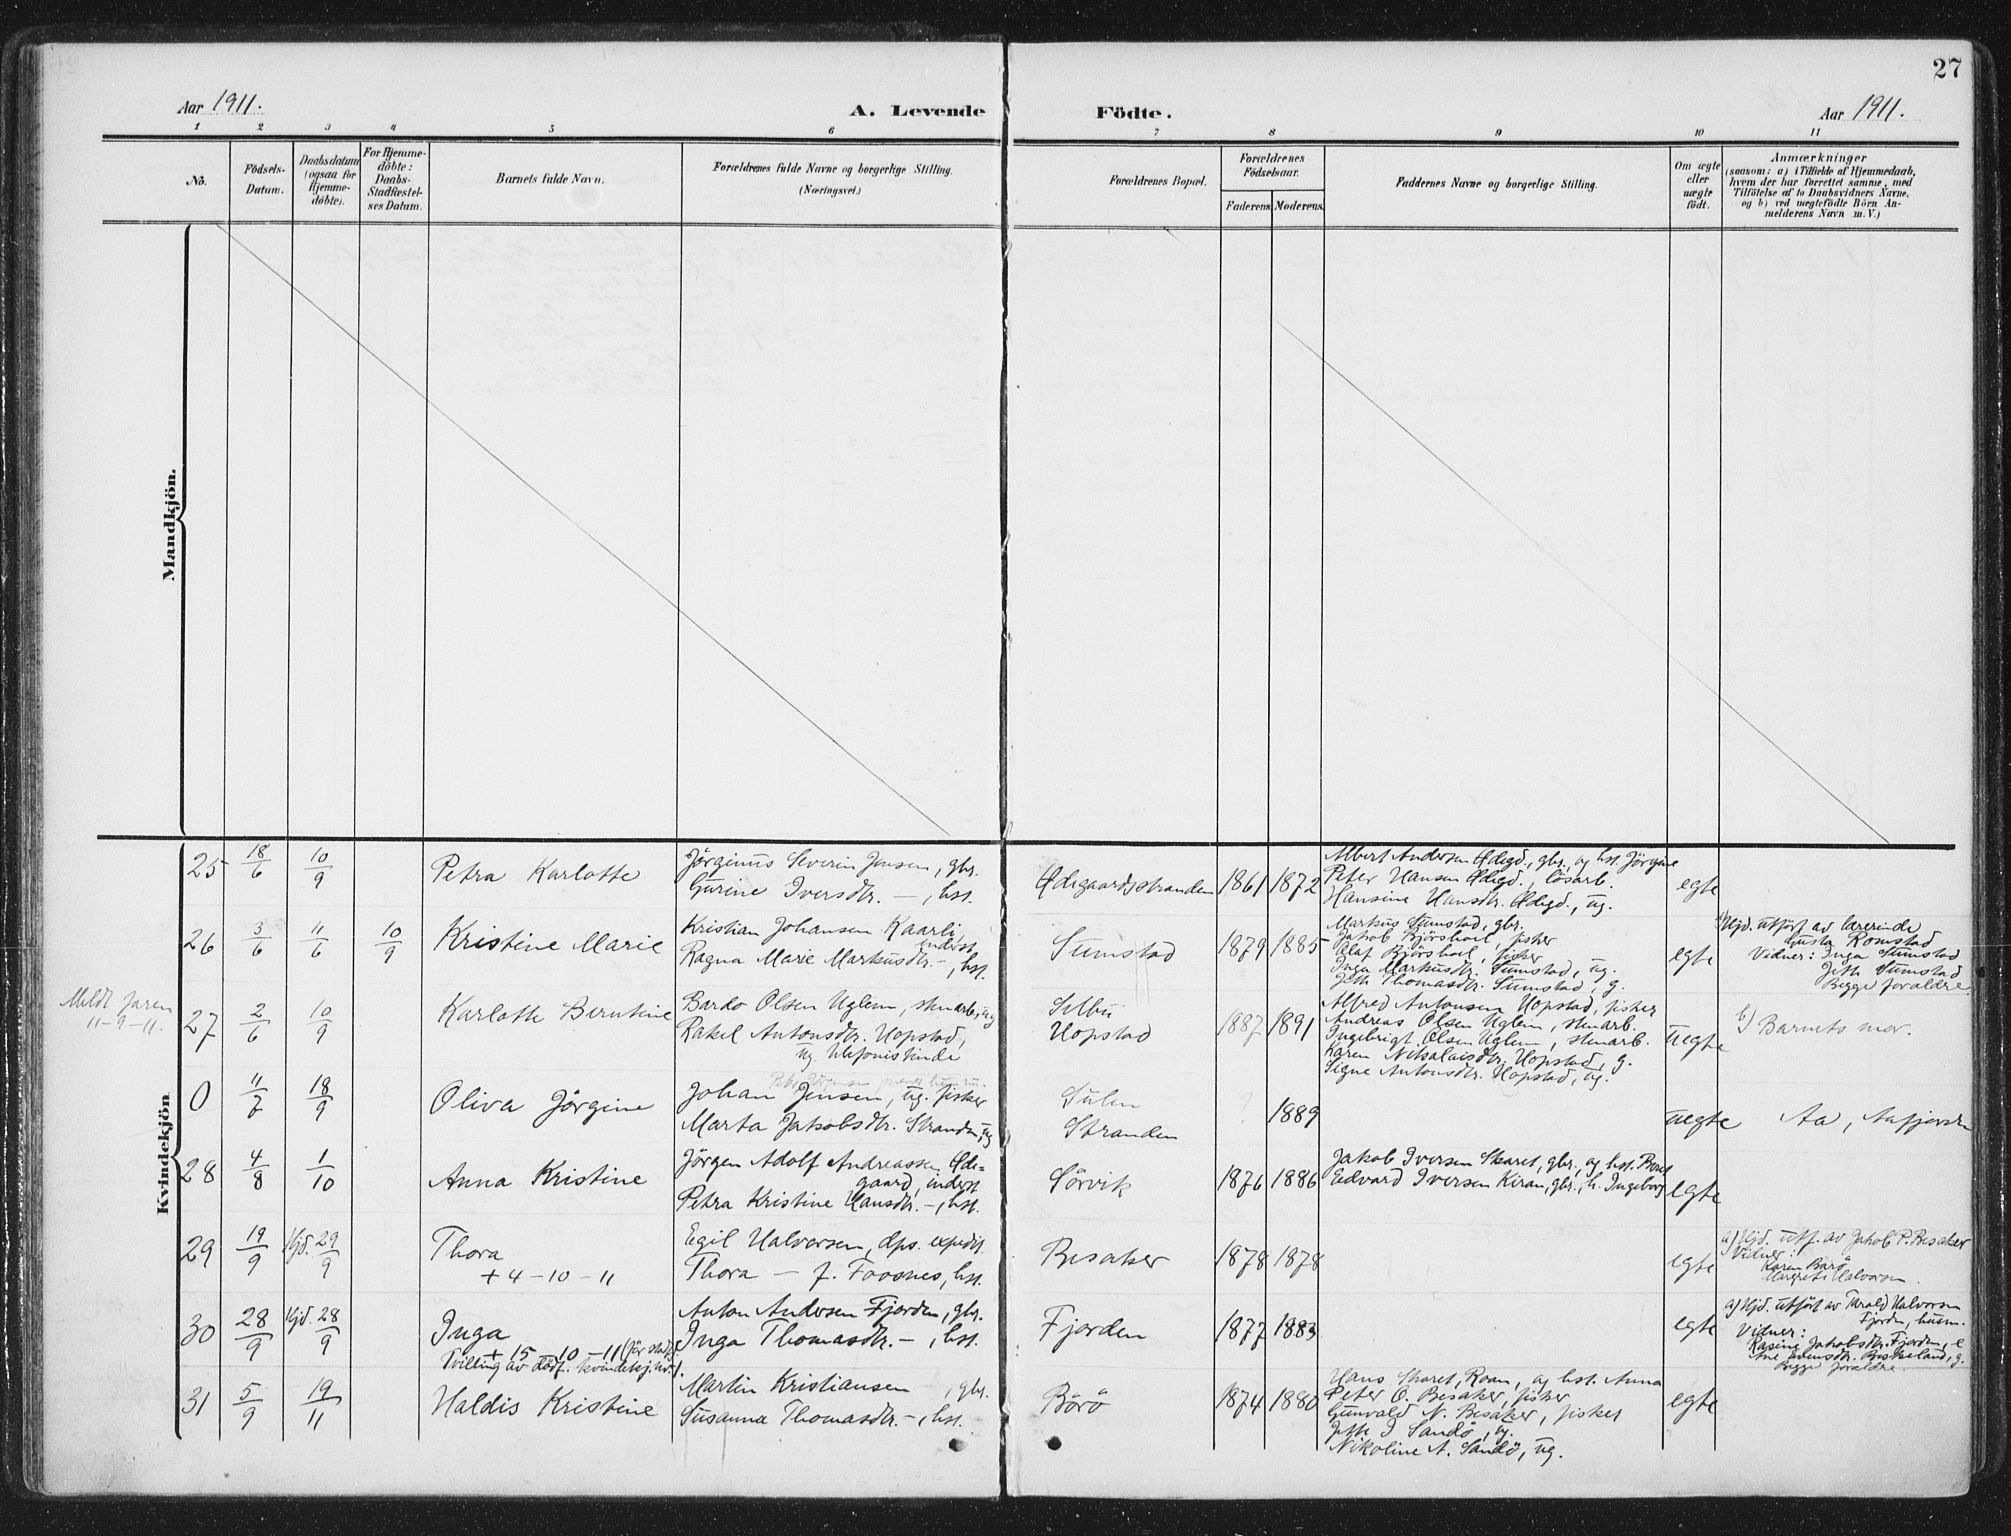 27
Aar 1911.
A. Levende Födte.
Aar 1911.
1 2 3 4 5 6 7 8 9 10 11
No.
Födsels-
Datum.
Daabsdatum
(ogsaa for
Hjemme-
döbte).
For Hjemme-
döbte:
Daabs-
Stadfæstel-
ses Datum.
Barnets fulde Navn.
Forældrenes fulde Navne og borgerlige Stilling.
(Næringsvei.)
Forældrenes Bopæl.
Forældrenes
Födselsaar.
Faderens. Moderens.
Faddernes Navne og borgerlige Stilling.
Om ægte
eller
uægte
födt.
Anmærkninger
(saasom: a) i Tilfælde af Hjemmedaab,
hvem der har forrettet samme, med
Tilföielse af to Daabsvidners Navne,
og b) ved uægtefödte Börn An-
melderens Navn m. V.)
Mandkjön.
Kvindekjön
25 18/6 10/9
Petra Karlotte
Jörginus Severin Jensen, gbr.
Gurine Iversdtr. —, hst.
Ødegaardsstranden 1861 1872
Albert Andersen Ødegd., gbr. og hst. Jörgine
Peter Hansen Ødegd., lösarb.
Hansine Hansdtr. Ødegd., ug.
egte
26 3/6 11/6 10/9
Kristine Marie
Kristian Johansen Kaarli,
inderst
Ragna Marie Markusdtr. —, hst.
Sumstad 1879 1885
Markus Sumstad, gbr.
Jakob Björshol, fisker
Olaf Björshol, fisker
Inga Markusdtr. Sumstad, ug.
Jeth Thomasdtr. Sumstad, g.
egte
Hjd. utfört av lærerinde
Gusta Romstad
Vidner: Inga Sumstad
Jeth Sumstad
Begge forældre.
Meldt Jaren
11-9-11.
27 2/6 10/9
Karlotte Berntine
Bardo Olsen Uglem, stenarb., ug
Rakel Antonsdtr. Hopstad,
ug. telefonistinde
Selbu
Hopstad 1887 1891
Alfred Antonsen Hopstad, fisker
Andreas Olsen Uglem, stenarb.
Ingebrigt Olsen Uglem, stenarb.
Karen Nikolaisdtr. Hopstad, g.
Signe Antonsdtr. Hopstad, ug.
uegte
b) Barnets mor.
0 11/7 18/9
Oliva Jörgine
Johan Jensen, ug. fisker
Marta Jakobsdtr. Stranden, ug
Sulen
Stranden ? 1889
uegte
Aa, Aafjorden
28 4/8 1/10
Anna Kristine
Jörgen Adolf Andreassen Øde-
gaard, inderst
Petra Kristine Hansdtr. —, hst.
Sörvik 1876 1886
Jakob Iversen Skaret, gbr., og hst. Beret
Edvard Iversen Kiran, gbr., h. Ingeborg
egte
29 19/9 Hjd. 29/9
Thora
+ 4-10-11
Egil Halvorsen, dps. expedit.
Thora — f. Foosnes, hst.
Besaker 1878 1878
egte
a) Hjd. utf. av Jakob P. Besaker
Vidner:
Karen Börö
Margrete Halvorsen.
30 28/9 Hjd. 28/9
Inga
+ 15-10-11 (för stadf.)
Tvilling av dödf. kvindekj. nr. 1.
Anton Andersen Fjorden, gbr.
Inga Thomasdtr. —, hst.
Fjorden 1877 1883
egte
a) Hjd. utfört av Tarald Halvorsen
Fjorden, husm.
Vidner:
Rasine Jakobsdtr. Fjorden, e
Begge forældre.
31 5/9 19/11
Haldis Kristine
Martin Kristiansen, gbr.
Susanna Thomasdtr. —, hst.
Börö 1874 1880
Hans Skaret, Roan, og hst. Anna
Peter O. Besaker, fisker
Gunvald N. Besaker, fisker
Jette I Sandö, ug.
Nikoline A. Sandö, ug.
egte